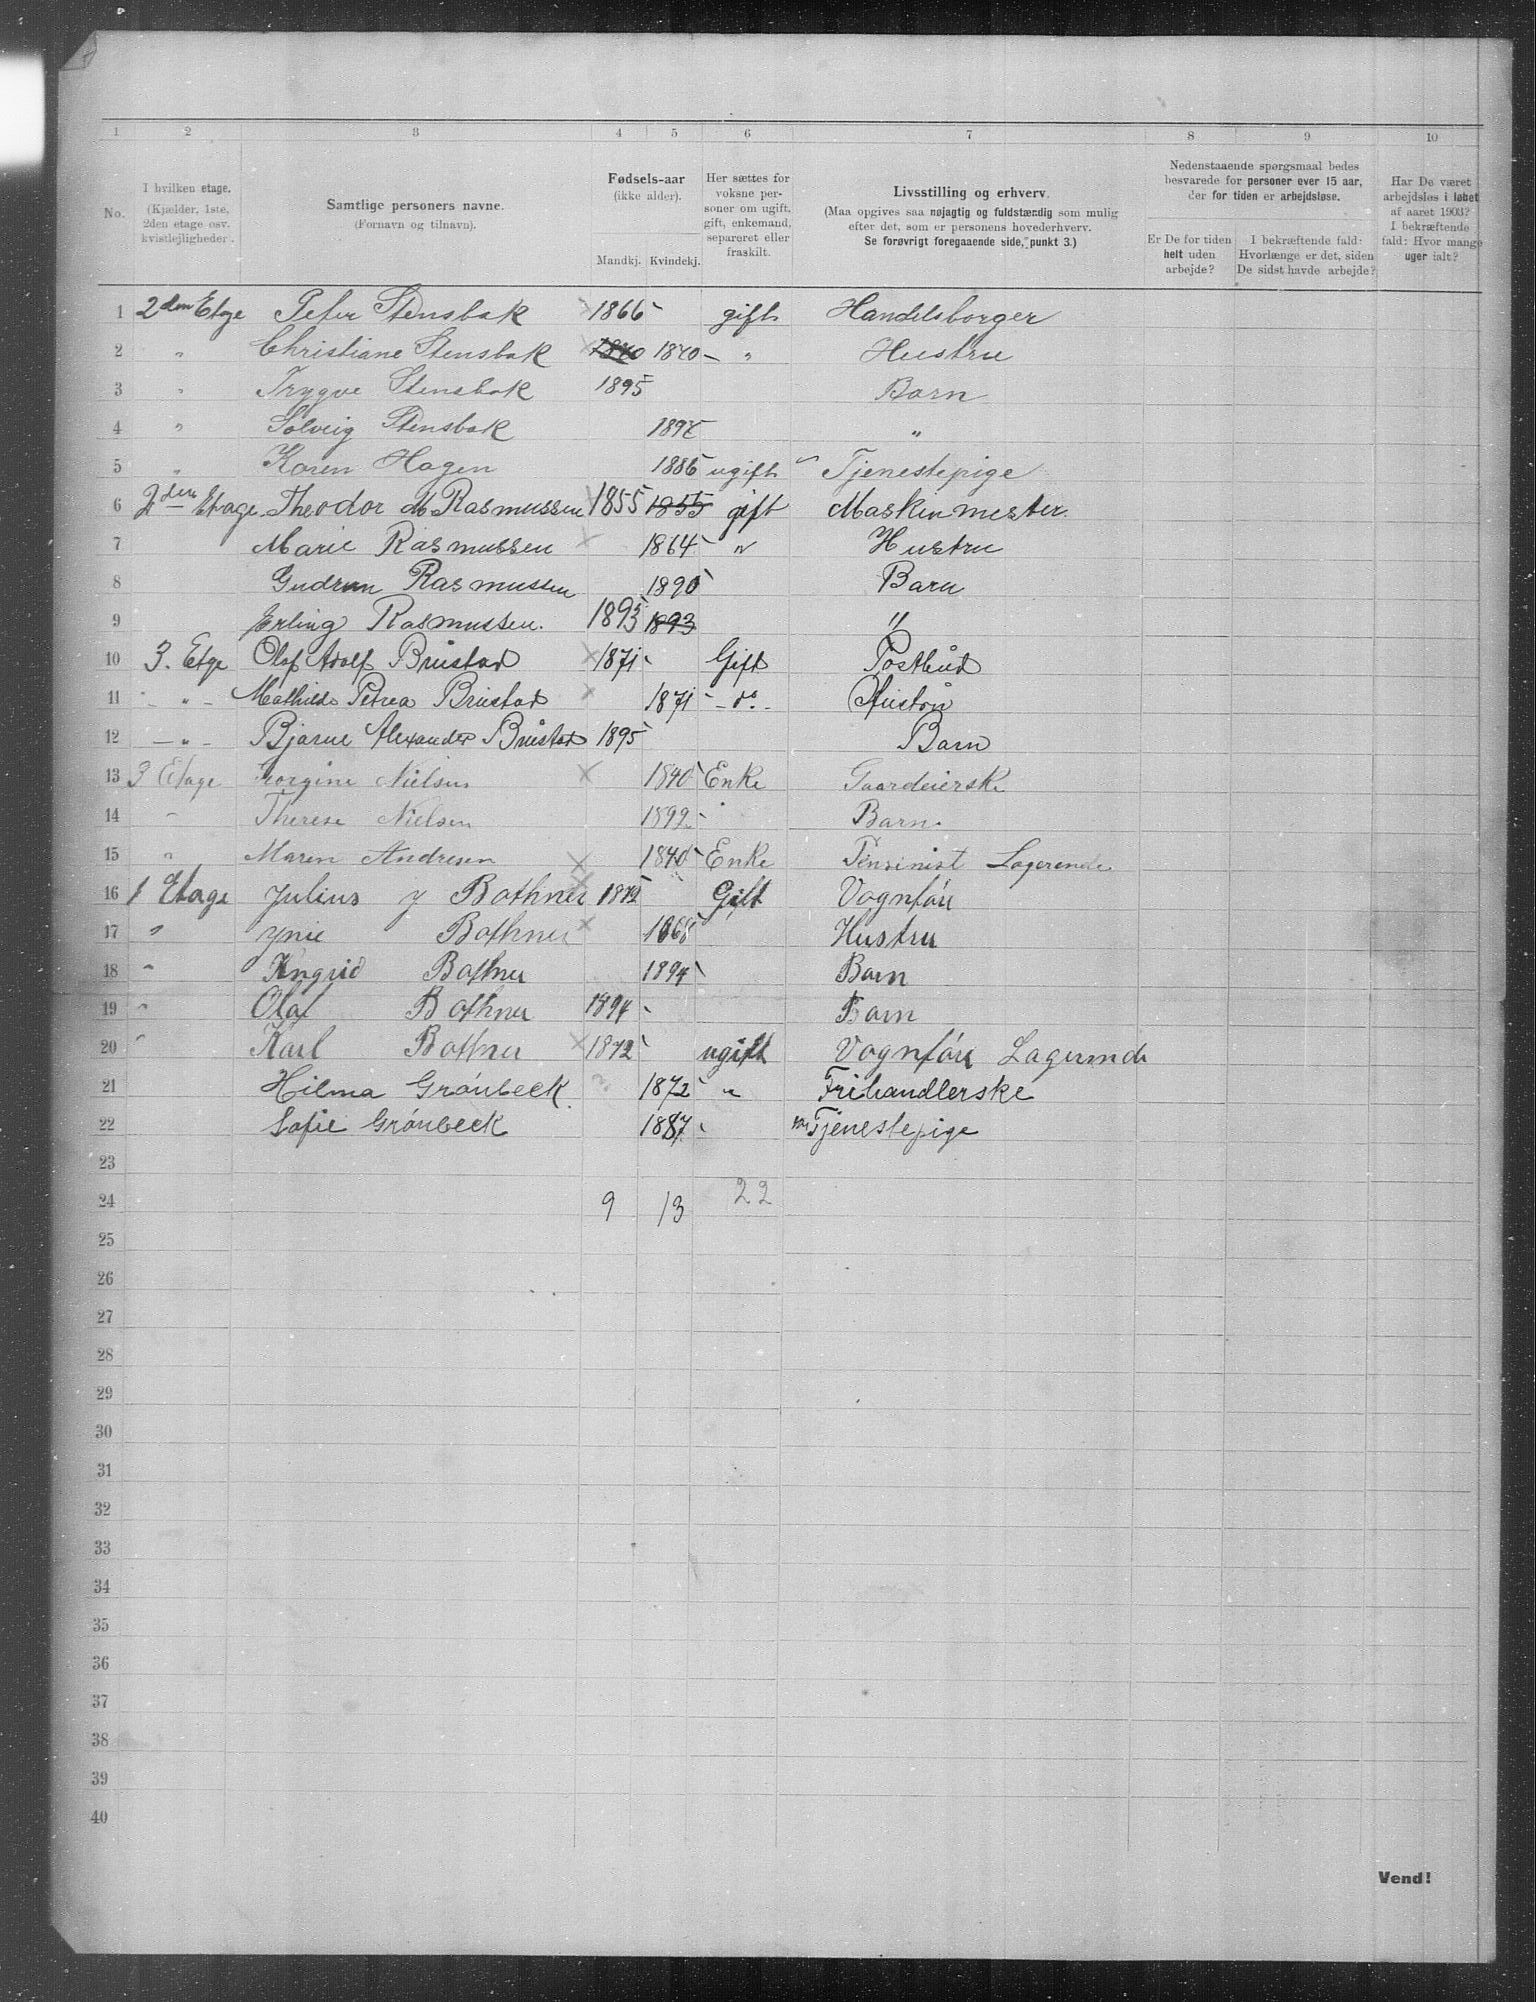 1 2 3 4 5 6 7 8 9 10
No.
I hvilken etage.
(Kjælder, 1ste, 2den etage osv. kvistlejligheder.
Samtlige personers navne.
(Fornavn og tilnavn).
Fødsels-aar
(ikke alder).
Mandkj. Kvindekj.
Her sættes for voksne personer om ugift, gift, enkemand, separeret eller fraskilt.
Livsstilling og erhverv.
(Maa opgives saa nøjagtig og fuldstændig som mulig efter det, som er personens hovederhverv.
Se forøvrigt foregaaende side, punkt 3.)
Nedenstaaende spørgsmaal bedes besvarede for personer over 15 aar, der for tiden er arbejdsløse.
Er De for tiden helt uden arbejde?
I bekræftende fald: Hvorlænge er det, siden De sidst havde arbejde?
Har De været arbejdsløs i løbet af aaret 1903? I bekræftende fald: Hvor mange uger ialt?
1 2den Etage Peter Stensbak 1866 gift Handelsborger
2 " Christiane Stensbak 1840 1840 " Hustru
3 " Trygve Stensbak 1895 Barn
4 " Solveig Stensbak "
5 " Karen Hagen 1886 ugift Tjenestepige
6 2den Etage Theodor M Rasmussen 1855 1855 gift Maskinmester
7 Marie Rasmussen 1864 " Hustru
8 Gudrun Rasmussen 1890 Barn
9 Erling Rasmussen. 1893 1893 "
10 3. Etge Olaf Adolf Brustad 1871 Gift Postbud
11 - " - Mathilde Petrea Brustad 1871 - do. - Hustru
12 - " - Bjarne Alexander Brustad 1895 Barn
13 3 Etage Georgine Nielsen 1840 Enke Gaardeierske
14 " Therese Nielsen 1892 Barn
15 " Maren Andresen 1840 Enke Pensinist Logerende
16 1 Etage Julius J Bothner 1872 Gift Vognfør
17 " Bothner 1868 Hustru
18 " Ingrid Bothner 1894 Barn
19 " Olaf Bothner 1894 Barn
20 " Karl Bothner 1872 ugift Vognfør Lagerende
21 Hilma Grønbeck. 1872 " Frihandlerske
22 Sofie Grønbeck 1887 Tjenestepige
23
24 9 13 22
25
26
27
28
29
30
31
32
33
34
35
36
37
38
39
40
Vend!